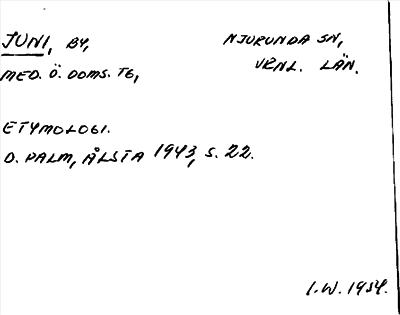 JUNI, BY,
NJURUNDA SN,
MED. Ö. DOMS. TG,
VRNL. LÄN.
ETYMOLOGI.
D. PALM, ÅLSTA 1943, S. 22.
I.W. 1954.